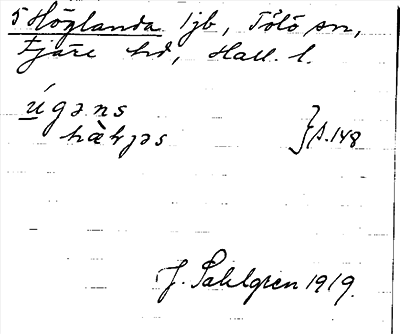 5 Höglanda 1jb, Tölö sn,
Fjäre hd, Hall. l.
ú gəns
hæ̀kjəs } s. 148
J. Sahlgren 1919.